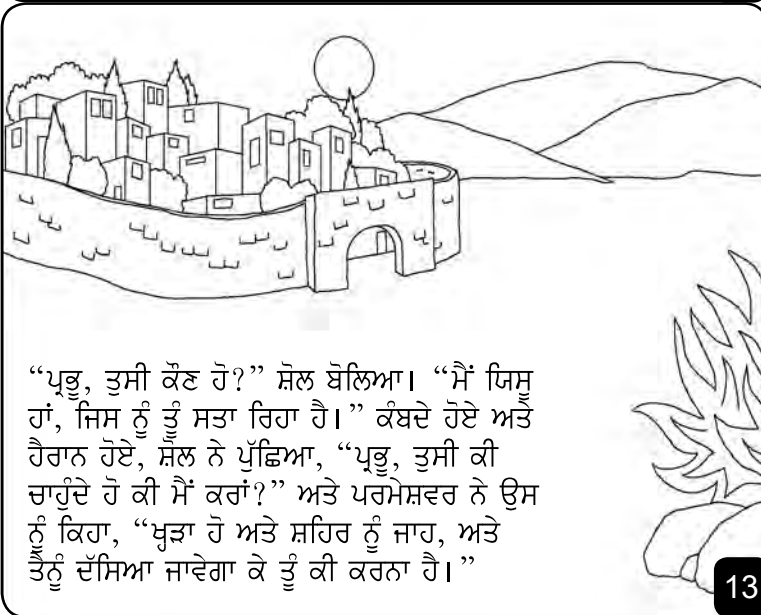 “ਪ੍ਰਭੂ, ਤੁਸੀ ਕੌਣ ਹੋ?” ਸ਼ੋਲ ਬੋਲਿਆ। “ਮੈਂ ਯਿਸੂ
ਹਾਂ, ਜਿਸ ਨੂੰ ਤੂੰ ਸਤਾ ਰਿਹਾ ਹੈ।” ਕੰਬਦੇ ਹੋਏ ਅਤੇ
ਹੈਰਾਨ ਹੋਏ, ਸ਼ੋਲ ਨੇ ਪੁੱਛਿਆ, “ਪ੍ਰਭੂ, ਤੁਸੀ ਕੀ
ਚਾਹੁੰਦੇ ਹੋ ਕੀ ਮੈਂ ਕਰਾਂ?” ਅਤੇ ਪਰਮੇਸ਼ਵਰ ਨੇ ਉਸ
ਨੂੰ ਕਿਹਾ, “ਖੜਾ ਹੋ ਅਤੇ ਸ਼ਹਿਰ ਨੂੰ ਜਾਹ, ਅਤੇ
ਤੈਨੂੰ ਦੱਸਿਆ ਜਾਵੇਗਾ ਕੇ ਤੂੰ ਕੀ ਕਰਨਾ ਹੈ।”
13